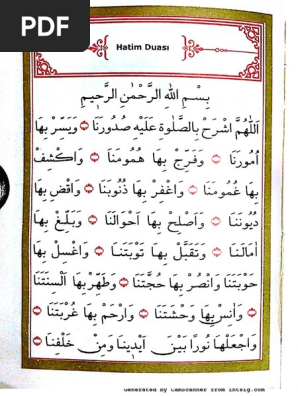 PDF
Hatim Duası
بِسْمِ اللّٰهِ الرَّحْمٰنِ الرَّحِيمِ
اَللّٰهُمَّ اشْرَحْ بِالصَّلٰوةِ عَلَيْهِ صُدُورَنَا وَيَسِّرْ بِهَا
اُمُورَنَا وَفَرِّجْ بِهَا هُمُومَنَا وَاكْشِفْ
بِهَا غُمُومَنَا وَاغْفِرْ بِهَا ذُنُوبَنَا وَاقْضِ بِهَا
دُيُونَنَا وَاَصْلِحْ بِهَا اَحْوَالَنَا وَبَلِّغْ بِهَا
اٰمَالَنَا وَتَقَبَّلْ بِهَا تَوْبَتَنَا وَاغْسِلْ بِهَا
حَوْبَتَنَا وَانْصُرْ بِهَا حُجَّتَنَا وَطَهِّرْ بِهَا اَلْسِنَتَنَا
وَاٰنِسْ بِهَا وَحْشَتَنَا وَارْحَمْ بِهَا غُرْبَتَنَا
وَاجْعَلْهَا نُورًا بَيْنَ اَيْدِينَا وَمِنْ خَلْفِنَا
Generated by CamScanner from intsig.com